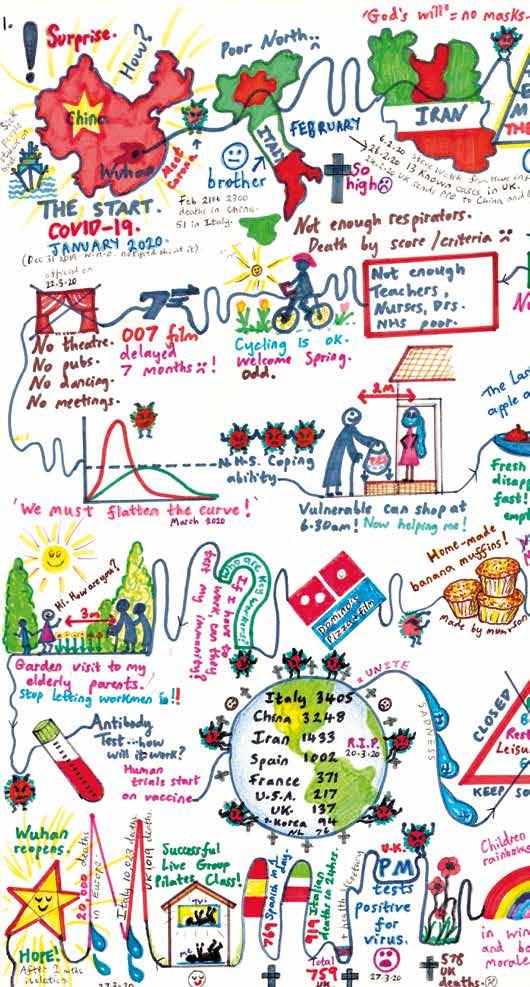 1.
Surprise.
How?
Poor North..
'God's will' = no masks.
China
Wuhan
Meet
Corona
ITALY
FEBRUARY
IRAN
brother
So
high
THE START.
COVID-19.
JANUARY 2020.
official on
Feb 21st 2300
deaths in China.
51 in Italy.
Not enough respirators.
Death by score/criteria
No theatre.
No pubs.
No dancing.
No meetings.
007 film
delayed
7 months !
Cycling is ok.
Welcome Spring.
Odd.
Not enough
Teachers,
Nurses, Drs.
NHS poor.
2M
The Las
apple a
N.H.S. Coping
ability
'We must flatten the curve!'
March 2020
Vulnerable can shop at
6.30am! Now helping me!
Fresh
disapp
fast!
empt
Hi. How are you?
3m
Who are Key workers?
If I have to
work can they
test my immunity?
Domino's
Pizza + film
Home-made
banana muffins!
made by mum
Garden visit to my
elderly parents.
Stop letting workmen in!!
Antibody
Test...how
will it work?
Human
trials start
on vaccine
UNITE
SADNESS
Italy 3405
China 3248
Iran 1433
Spain 1002
France 371
U.S.A. 217
UK. 137
S. Korea 94
NL 76
R.I.P.
20-3-20
CLOSED
Rest
Leisu
KEEP SO
Wuhan
reopens.
HOPE!
After 2 mths
isolation.
20 000 deaths
in Europe
Italy 10,023 deaths
UK 1019 deaths
27-3-20
Successful
Live Group
Pilates Class!
TV
ME
769 Spanish in 1
day.
919 Italian
deaths in 24hrs.
Total
759
UK
+ health secretary
U.K.
PM
tests
positive
for
virus.
27-3-20
578
UK
deaths.
Children
rainbows
in win
and bo
morale